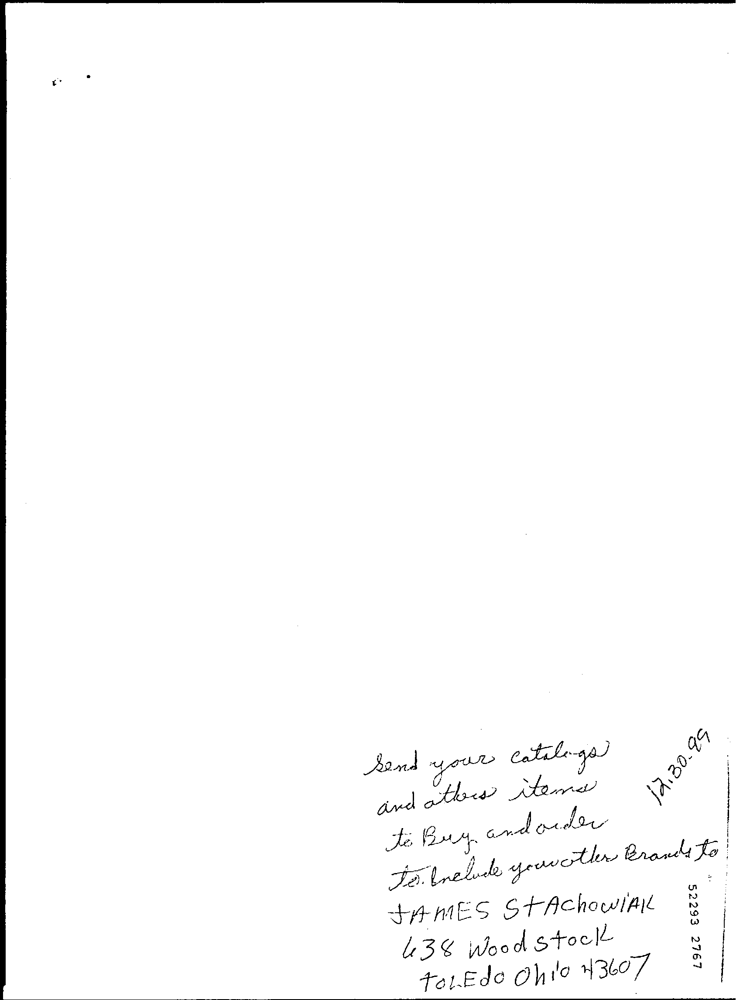 Send your catalogs
and others items
to Buy and order
To. Include your other Brands to
JAMES StAchowiAK
638 Woodstock
TOLEdo Ohio 43607
12.30.99
52293 2767